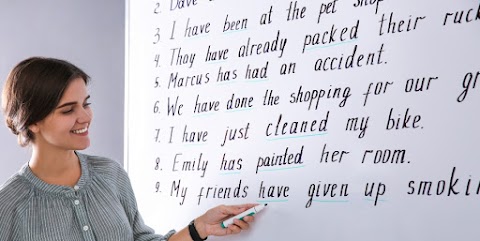 2. Dave
3 I have been at the pet shop
4. Thay have already packed their ruck
5. Marcus has had an accident.
6. We have done the shopping for our gr
7. I have just cleaned my bike.
8. Emily has painted her room.
9. My friends have given up smokin